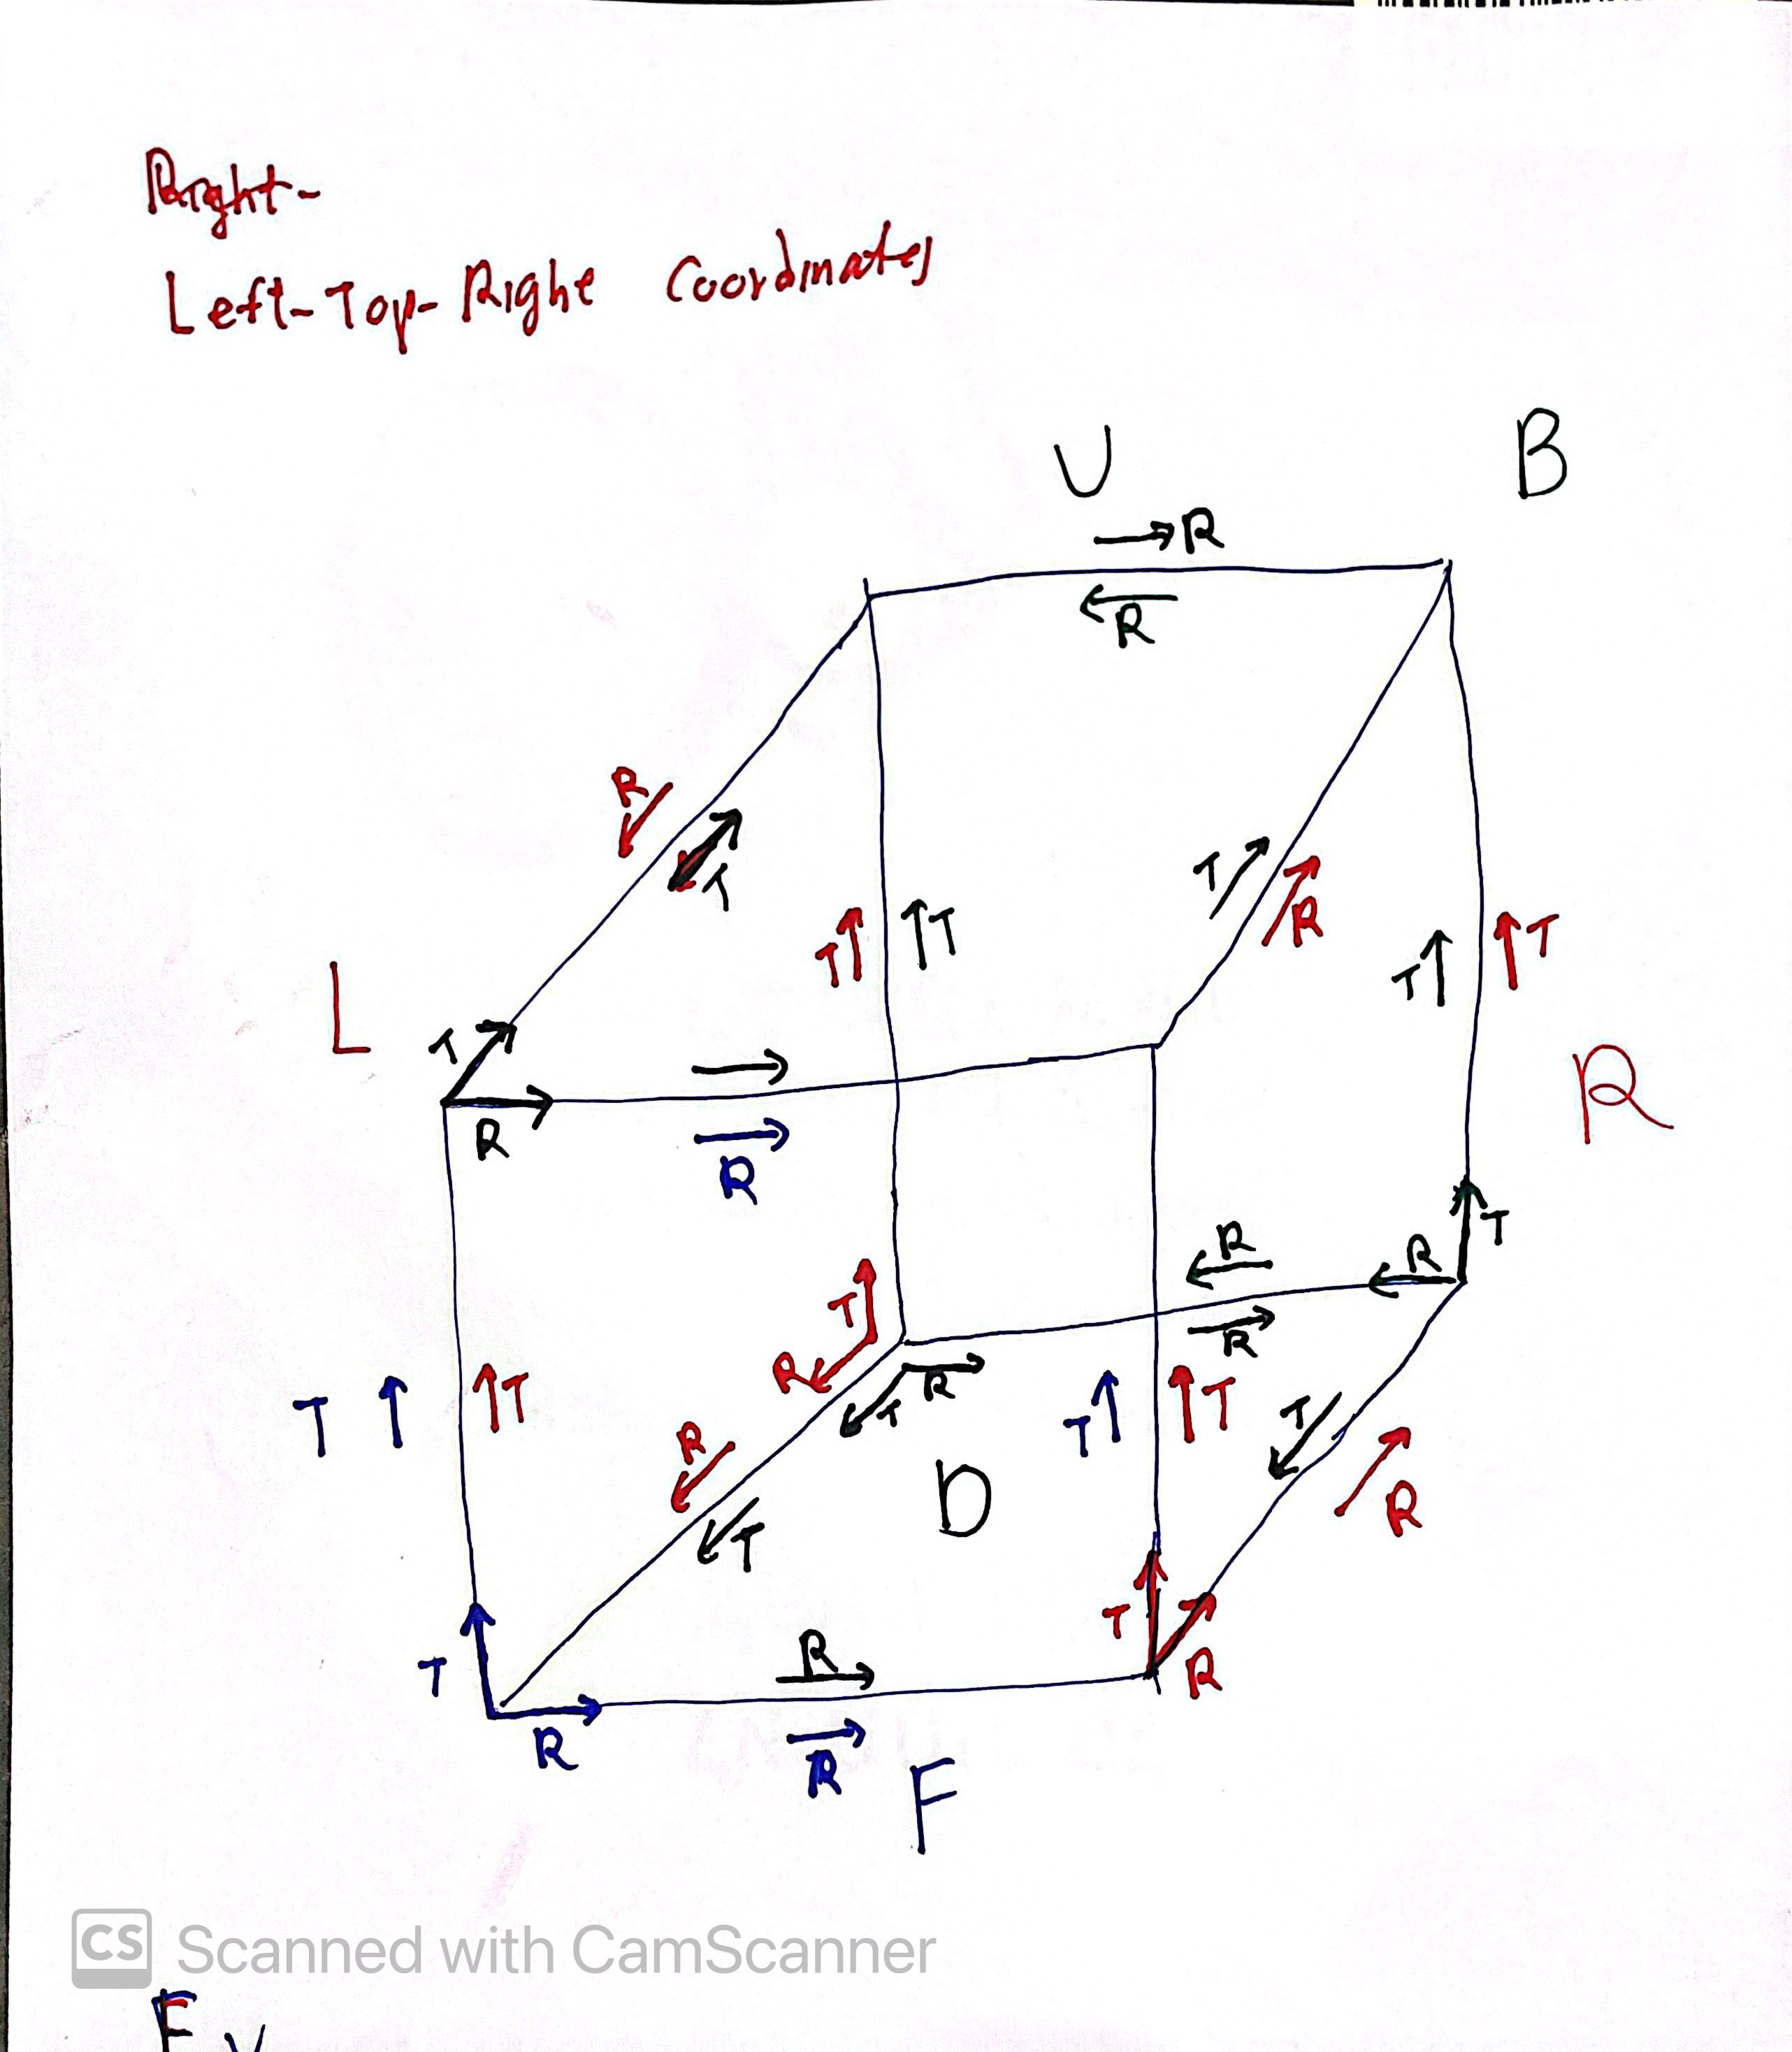 Right-
Left-Top-Right Coordinates
U B
R
R
R
T
T
R
T T
T T
L
T
R
R
R
R
R T
T
R
R
R T
T T
T T
T R
R
T
D
R
T
T R
R
R
R
F
CS Scanned with CamScanner
F